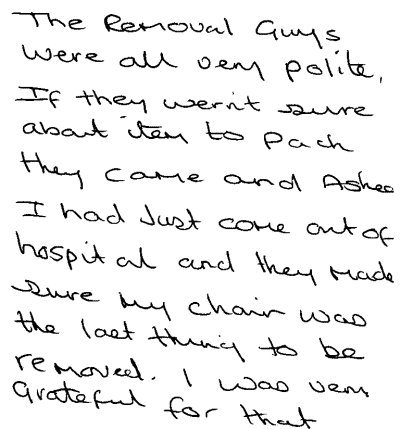 The Removal Guys
were all very polite.
If they wern't sure
about item to pack
they came and Asked
I had Just come out of
hospital and they made
sure my chair was
the last thing to be
removed. I was very
Grateful for that